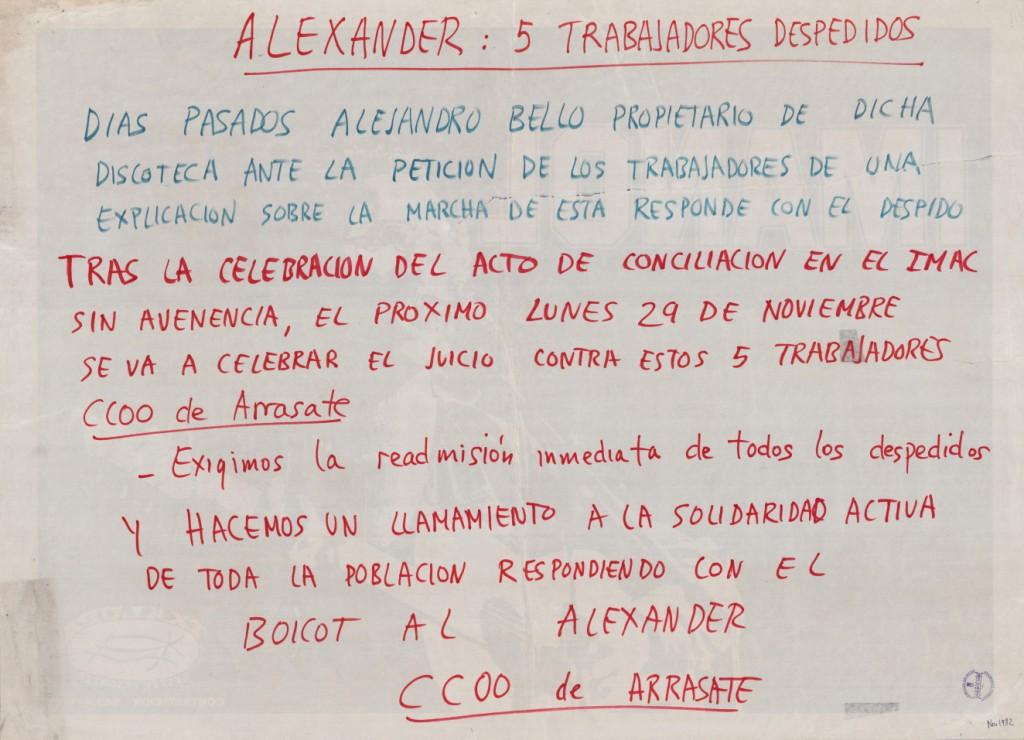 ALEXANDER: 5 TRABAJADORES DESPEDIDOS
DIAS PASADOS ALEJANDRO BELLO PROPIETARIO DE DICHA
DISCOTECA ANTE LA PETICION DE LOS TRABAJADORES DE UNA
EXPLICACION SOBRE LA MARCHA DE ESTA RESPONDE CON EL DESPIDO
TRAS LA CELEBRACION DEL ACTO DE CONCILIACION EN EL IMAC
SIN AVENENCIA, EL PROXIMO LUNES 29 DE NOVIEMBRE
SE VA A CELEBRAR EL JUICIO CONTRA ESTOS 5 TRABAJADORES
CCOO de Arrasate
- Exigimos la readmisión inmediata de todos los despedidos
Y HACEMOS UN LLAMAMIENTO A LA SOLIDARIDAD ACTIVA
DE TODA LA POBLACION RESPONDIENDO CON EL
BOICOT AL ALEXANDER
CCOO de ARRASATE
Nov 1982